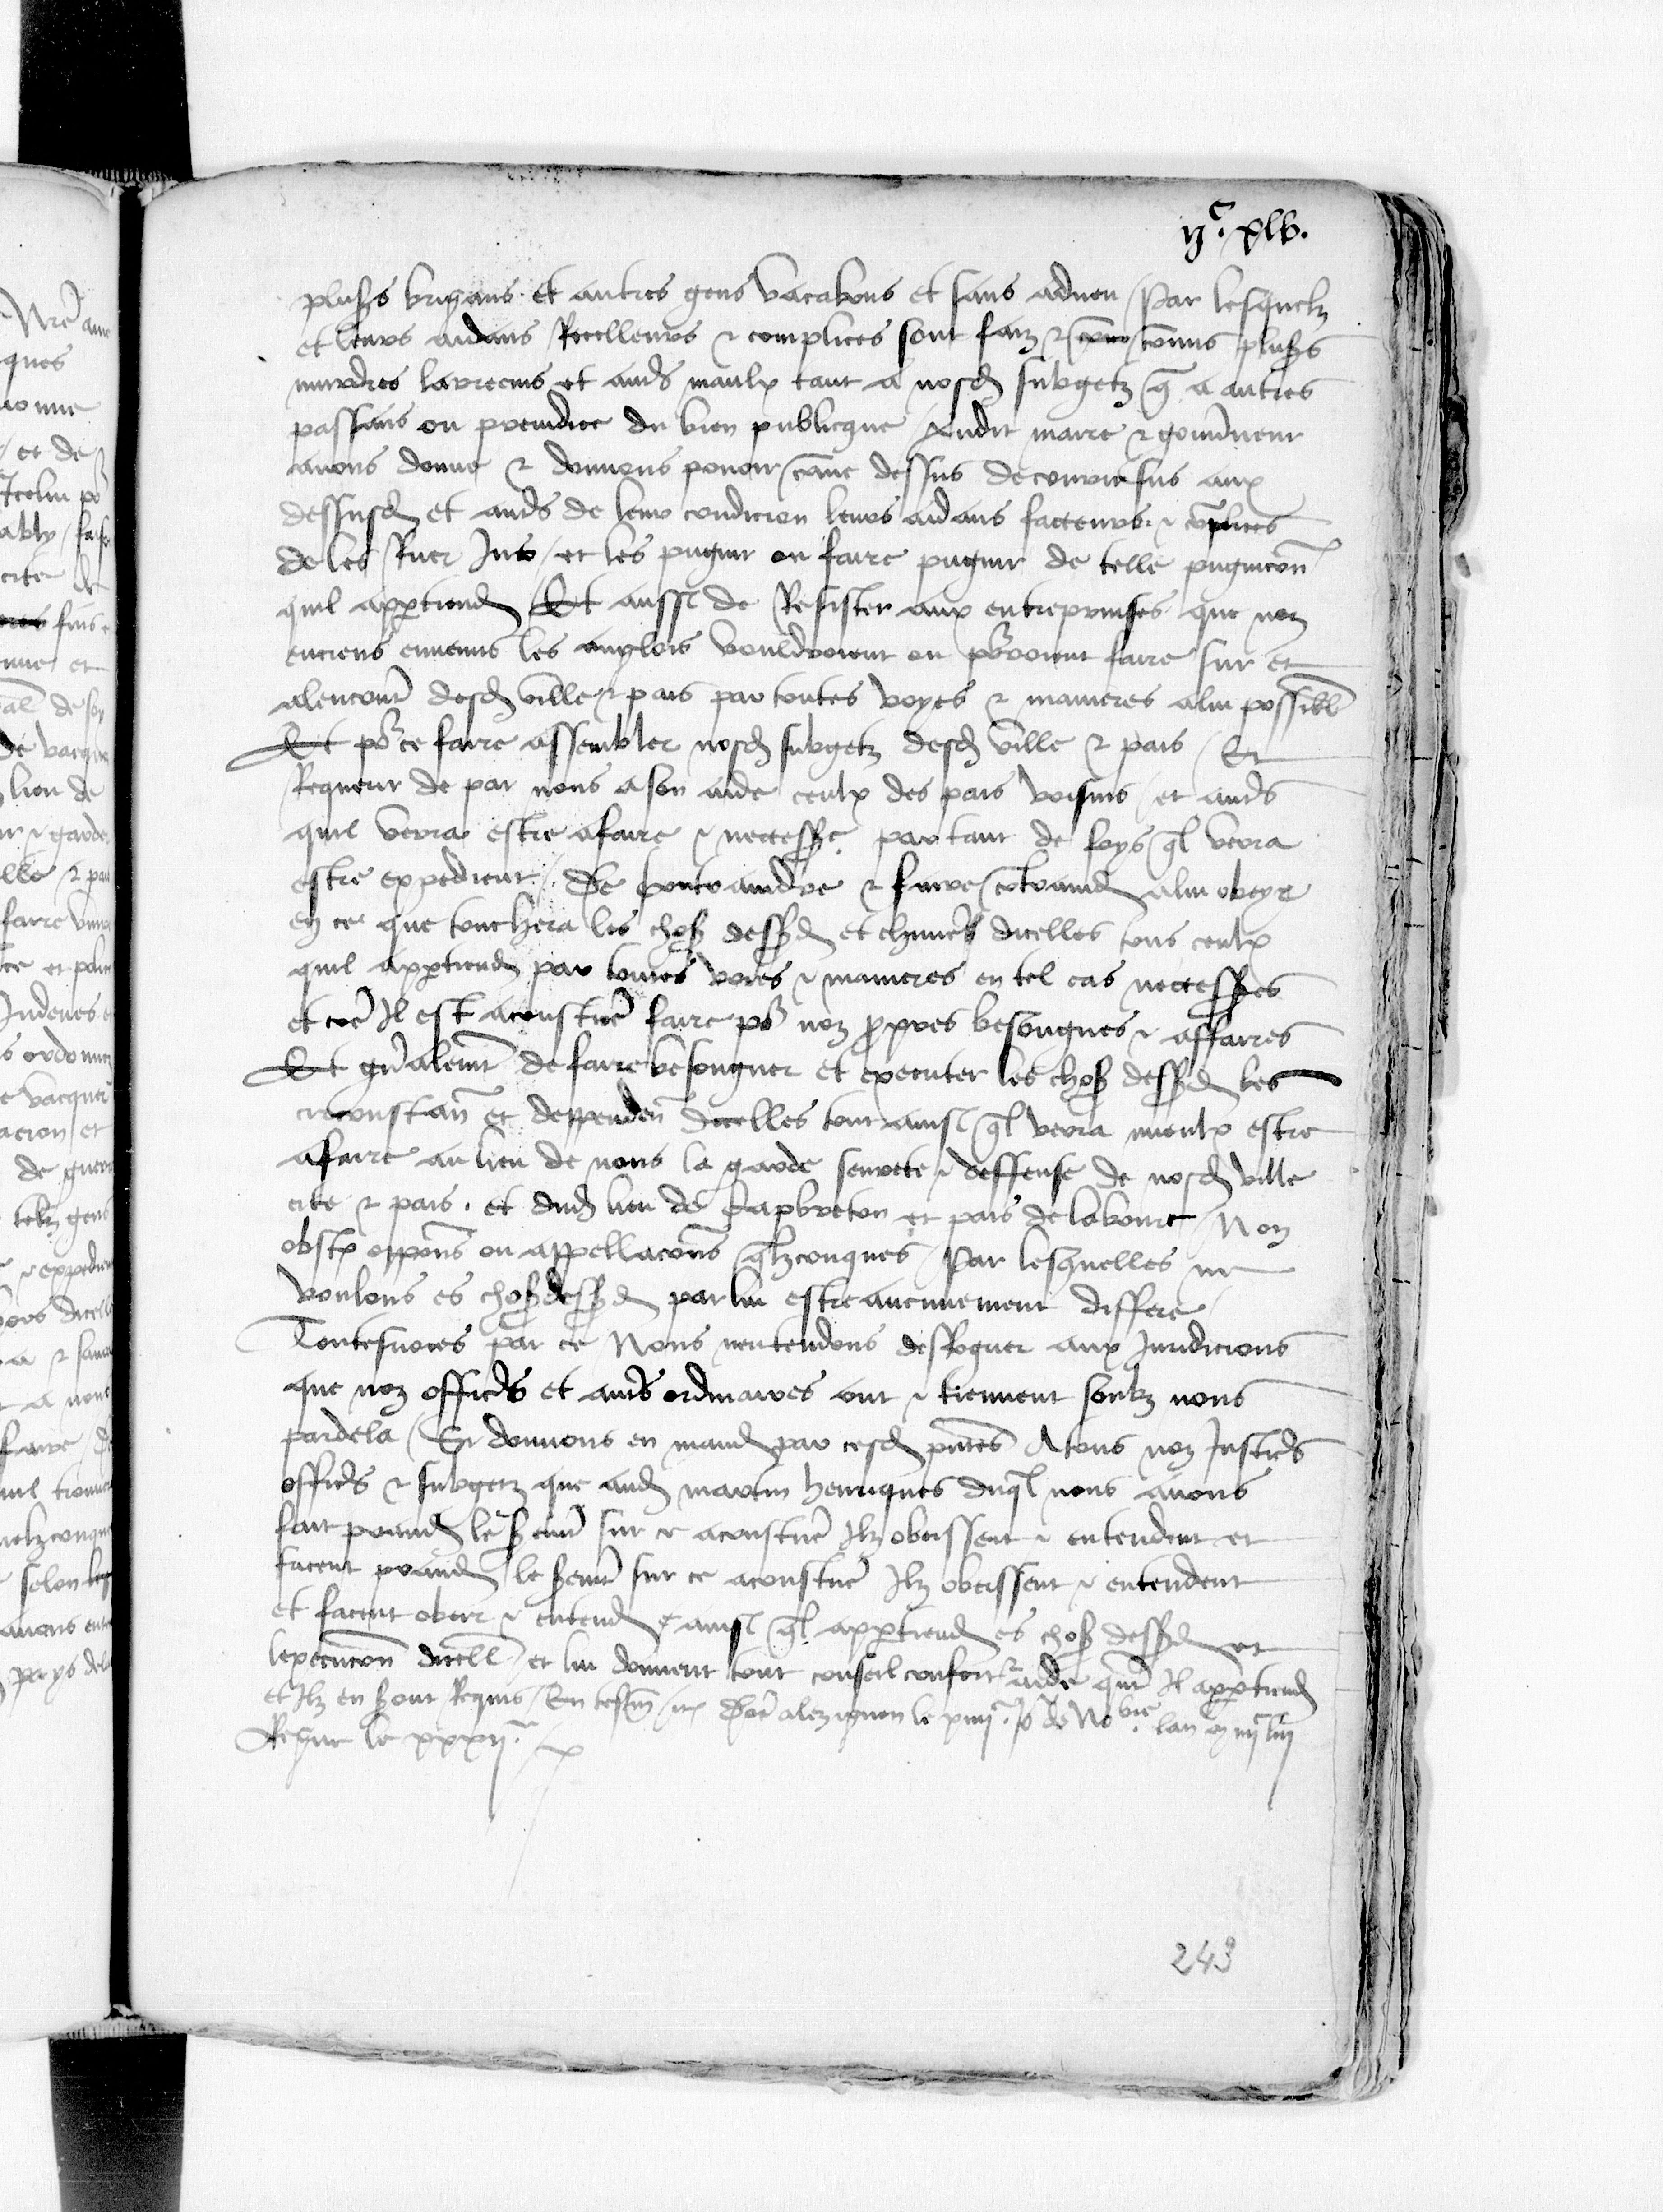 ijc. xlv.
plusrs brigans et autres gens vacabons et sans adveu / Par lesquelz
et leurs aidans Recelleurs & complices sont faiz & comis plusrs
murdres larrecins et auts maulx tant a nosd subgetz q a autres
passans ou preiudice du bien publicque / Audit maire & gouvneur
avons donne & donnons povoir come dessus de courir sus aux
dessusd et auts de leur condicion leurs aidans facteurs & complices
de les ruer jus / et les pugnir ou faire pugnir de telle pugnicon
quil appartiend Et aussi de Resister aux entreprinses que noz
enciens ennemis les anglois vouldroient ou porroient faire sur et
alencontr desd ville & pais par toutes voyes & manieres a lui possibl
Et por ce faire assembler nosd subgetz desd ville & pais / Et
Requerir de par nous a son aide ceulx des pais voisins / et auts
quil verra estre a faire & necesse par tant de foys ql verra
estre expedient / De contraindre & faire contraind a lui obeyr
en ce que touchera les choses dessd et chune dicelles tous ceulx
quil appartiend par toutes voies & manieres en tel cas necesses
et coe Il est acoustue faire por noz propres besongnes & affaires
Et gnalemt de faire besongner et executer les choses dessd les
circonstan et deppenden dicelles tout ainsi ql verra mieulx estre
a faire au lieu de nous la garde seurete & deffense de nosd ville
cite & pais. et dud lieu de Capbreton et pais de labourt / Non
obst opposons ou appellacons qlzconques / Par lesquelles ne
voulons es choses dessd par lui estre aucunement differe /
Toutesvoies par ce Nous nentendons desroguer aux Juridicions
que noz officrs et auts ordinaires ont & tiennent soubz nous
pardela / Si donnons en mand par cesd pntes A tous noz Justicrs
officrs & subgetz que aud martin henriques duql nous avons
fait prand le sermt sur ce acoustue Ilz obeissent & entendent et
facent prand le sermt sur ce acoustue Ilz obeissent & entendent
et facent obeir & entend & ainsi ql appartiend es choses dessd et
lexecucon dicell / et lui donnent tout conseil confort & aide qnt Il appartiend
et Ilz en sont Requis / En tesm &c Don a lezignen le xiiije Jr de Nobre. lan m iiijc liij
Regne le xxxije. &c
243